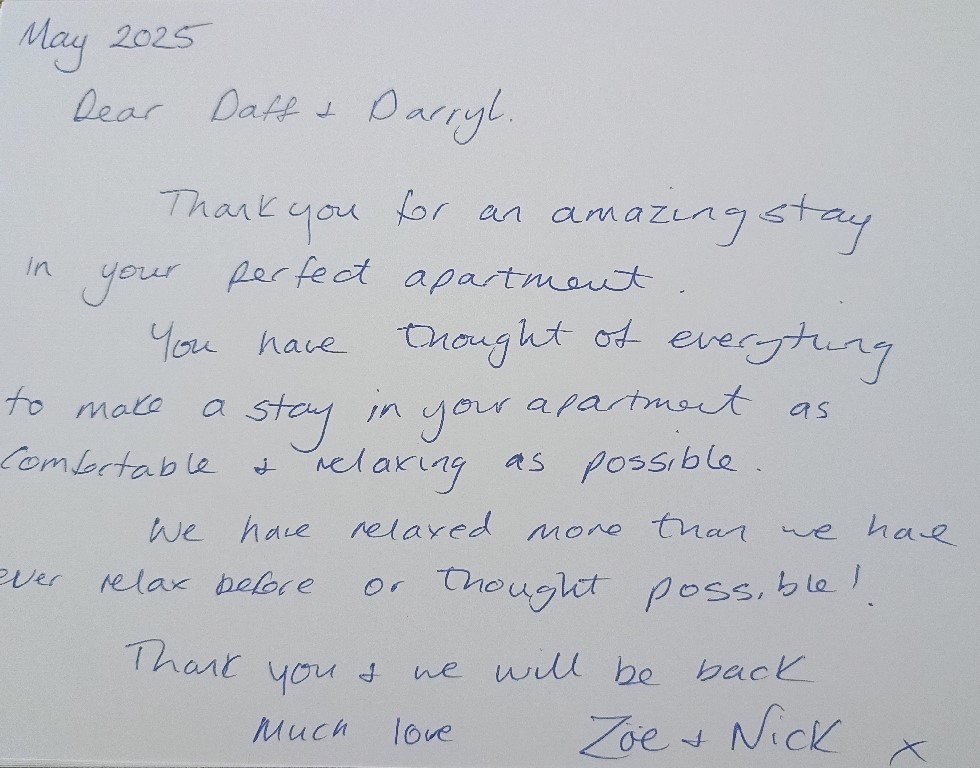 May 2025
Dear Daff & Darryl.
Thank you for an amazing stay
in your perfect apartment.
You have thought of everything
to make a stay in your apartment as
comfortable & relaxing as possible.
We have relaxed more than we have
ever relax before or thought possible!
Thank you & we will be back
Much love Zoë & Nick x